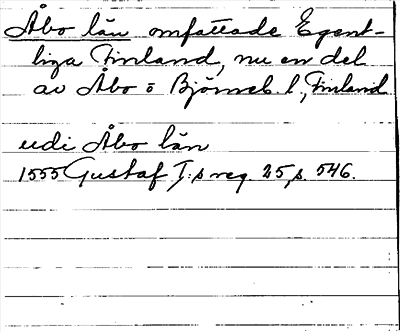 Åbo län omfattade Egent-
liga Finland, nu en del
av Åbo o Björneb. l., Finland
udi Åbo län
1555 Gustaf I:s reg. 25, s. 546.